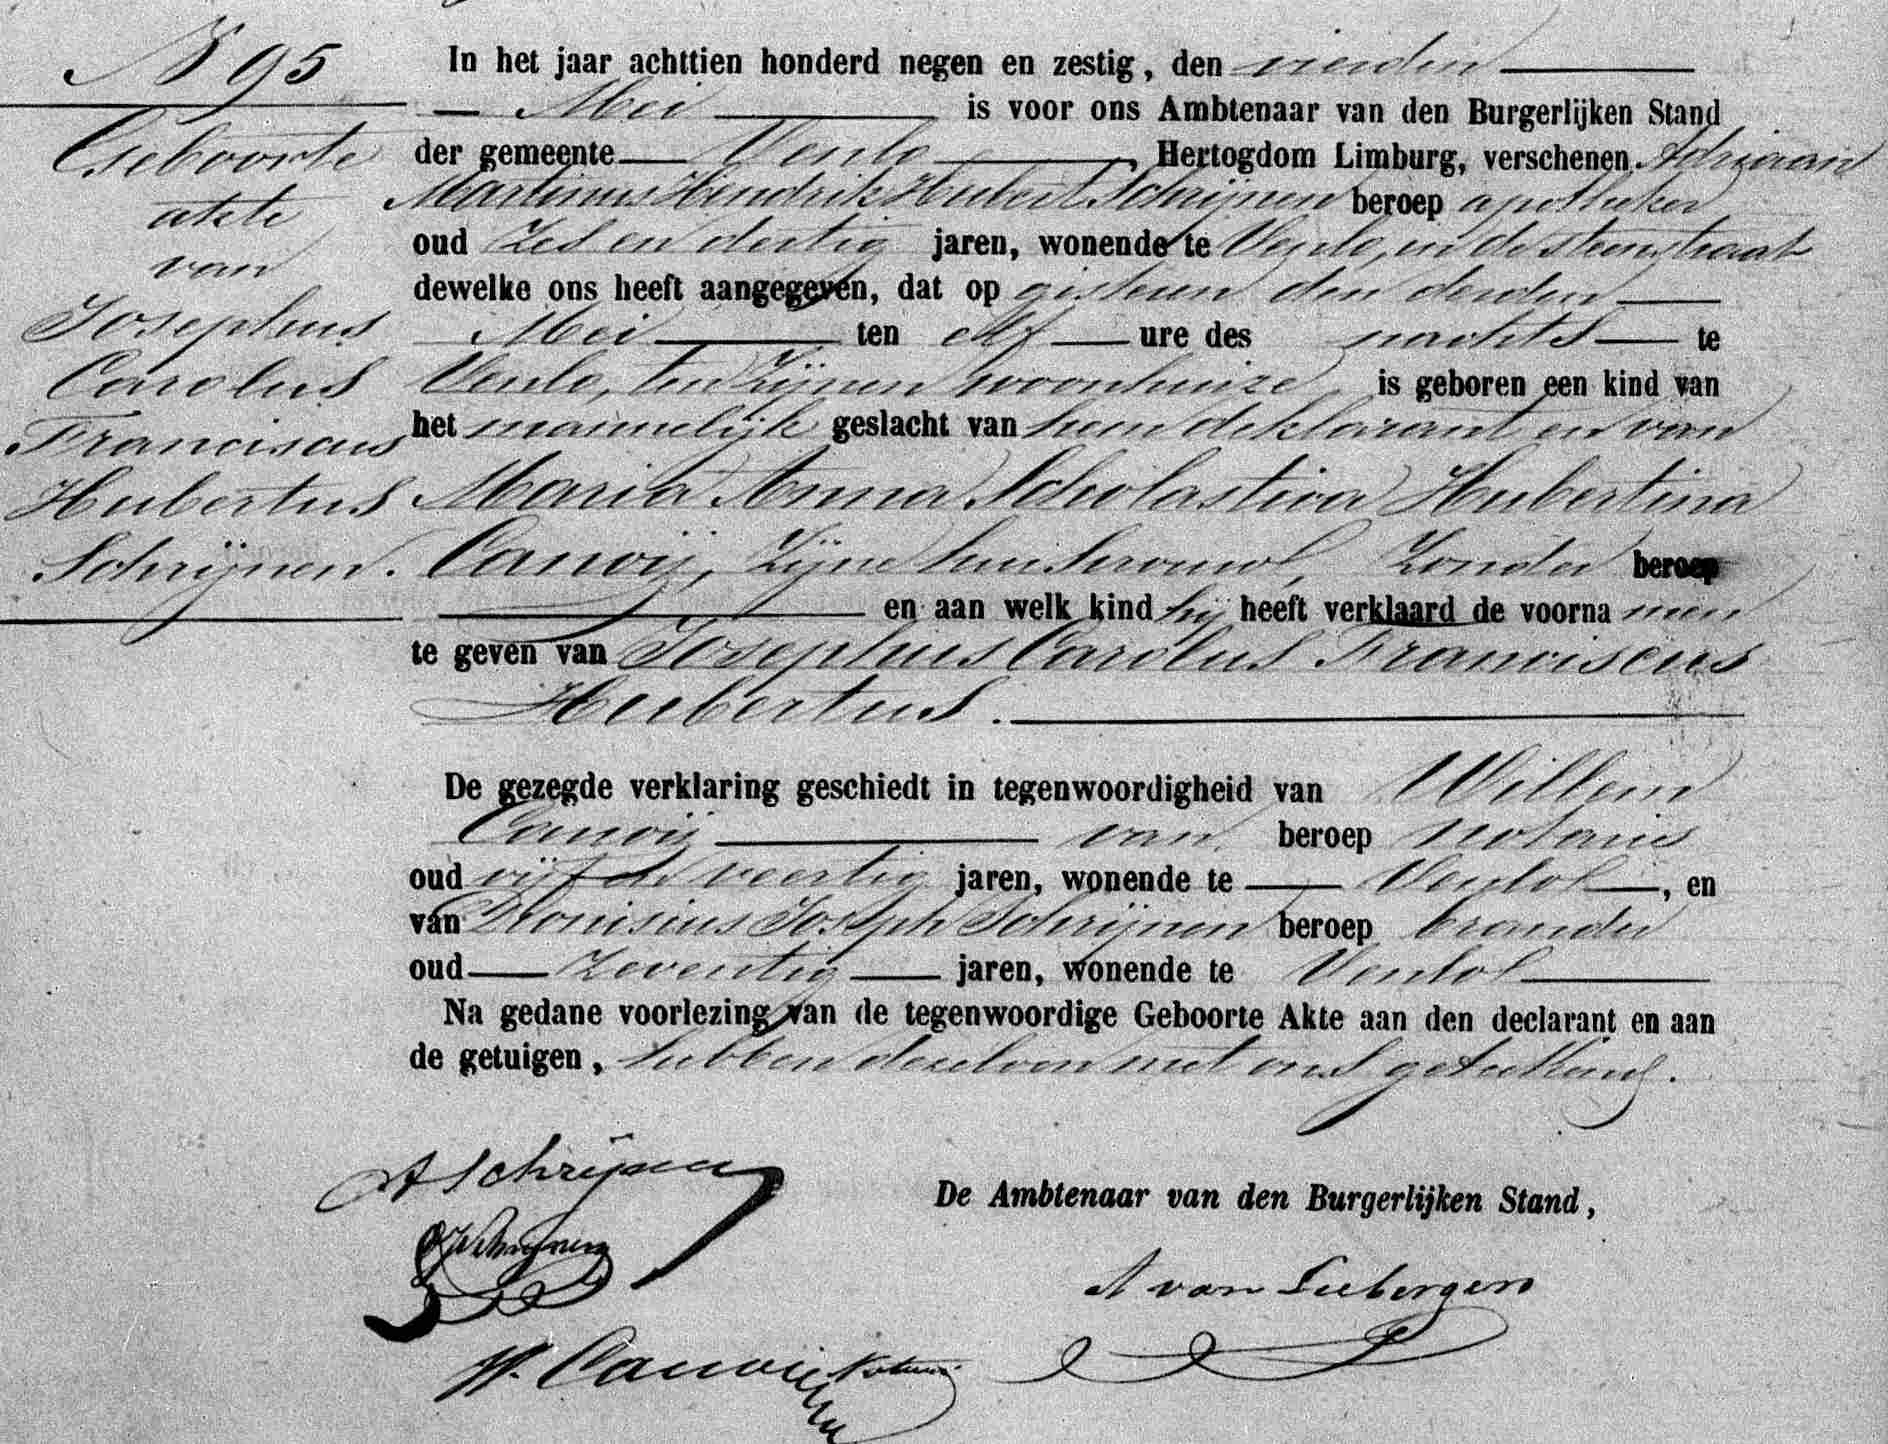 N 95
Geboorte
akte
van
Josephus
Carolus
Franciscus
Hubertus
Schrijnen.
In het jaar achttien honderd negen en zestig, den vierden
Mei is voor ons Ambtenaar van den Burgerlijken Stand
der gemeente Venlo, Hertogdom Limburg, verschenen Adriaan
Martinus Hendrik Hubert Schrijnen beroep apotheker
oud zes en dertig jaren, wonende te Venlo, in de steenstraat
dewelke ons heeft aangegeven, dat op gisteren den derden
Mei ten elf ure des nachts te
Venlo, ten zijnen woonhuize, is geboren een kind van
het mannelijk geslacht van hem deklarant en van
Maria Anna Scholastica Hubertina
Canoij, zijne huisvrouw, zonder beroep
en aan welk kind hij heeft verklaard de voorna men
te geven van Josephus Carolus Franciscus
Hubertus.
De gezegde verklaring geschiedt in tegenwoordigheid van Willem
Canoij van beroep notaris
oud vijf en veertig jaren, wonende te Venlo, en
van Dionisius Joseph Schrijnen beroep brander
oud zeventig jaren, wonende te Venlo
Na gedane voorlezing van de tegenwoordige Geboorte Akte aan den declarant en aan
de getuigen, hebben dezelven met ons geteekend.
A Schrijnen
De Ambtenaar van den Burgerlijken Stand,
DJ Schrijnen
A van Liebergen
W. Canoij Notaris